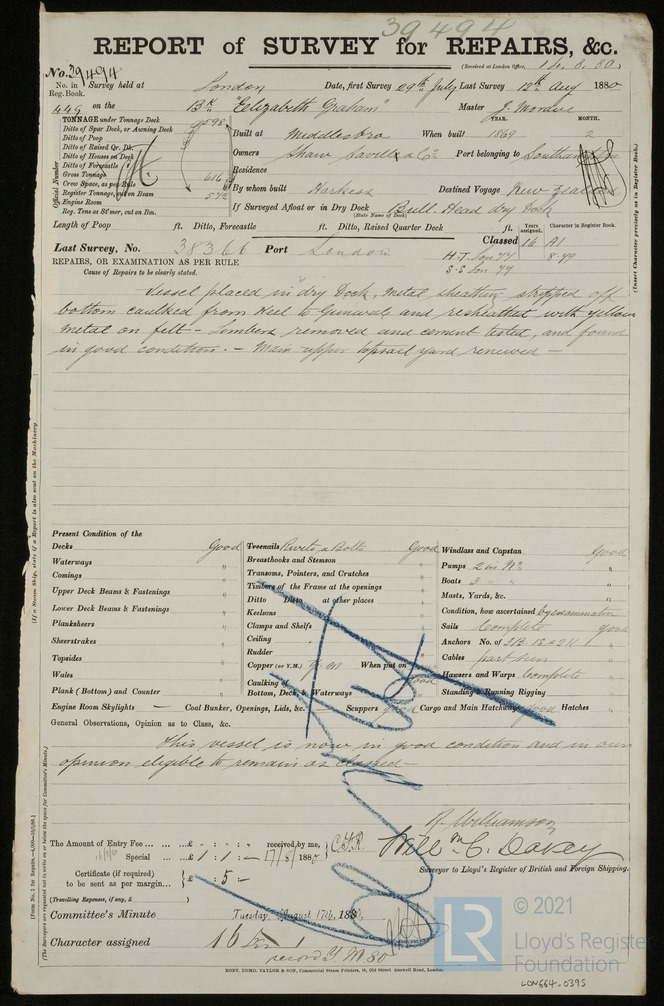 39494
REPORT of SURVEY for REPAIRS, &c.
(Received at London Office, 14.8.80)
No. 39494
No. in Reg. Book. Survey held at London Date, first Survey 29th July Last Survey 12th Aug 1880
449 on the Bk "Elizabeth Graham" Master J.
TONNAGE under Tonnage Deck 598
Ditto of Spar Deck, or Awning Deck
Ditto of Poop
Ditto of Raised Qr. Dk.
Ditto of Houses on Deck
Ditto of Forecastle
Gross Tonnage 616
Crew Space, as per Rule
Register Tonnage, cut on Beam 592
Engine Room
Reg. Tons as St'mer, cut on Bea.
Official Number
YEAR. MONTH.
Built at Middlesbro When built 1869 2
Owners Shaw Savill & Co Port belonging to
Residence
By whom built Harkess Destined Voyage New Zealand
If Surveyed Afloat or in Dry Dock Bull Head dry Dock
(State Name of Dock)
(Insert Character precisely as in Register Book.)
Length of Poop ft. Ditto, Forecastle ft. Ditto, Raised Quarter Deck ft.
Years assigned. Character in Register Book.
Last Survey, No. 38366 Port London Classed 16 A1
H.T. Lon 77 8.79
S.S Lon 77
REPAIRS, OR EXAMINATION AS PER RULE
Cause of Repairs to be clearly stated.
Vessel placed in dry Dock, metal sheathing stripped off
bottom caulked from Keel to Gunwale and resheathed with yellow
metal on felt - Limbers removed and cement tested, and found
in good condition. - Main upper topsail yard renewed -
(If a Steam Ship, state if a Report is also sent on the Machinery.
Present Condition of the
Decks Good
Waterways "
Comings "
Upper Deck Beams & Fastenings "
Lower Deck Beams & Fastenings "
Planksheers "
Sheerstrakes "
Topsides "
Wales "
Plank (Bottom) and Counter "
Treenails Rivets & Bolts Good
Breasthooks and Stemson "
Transoms, Pointers, and Crutches "
Timbers of the Frame at the openings "
Ditto Ditto at other places
Keelsons
Clamps and Shelfs
Ceiling
Rudder
Copper (or Y.M.) When put on
Caulking of Bottom, Deck, & Waterways good
Windlass and Capstan Good
Pumps 2 in No. "
Boats 3 " " "
Masts, Yards, &c. "
Condition, how ascertained by examination
Sails Complete good
Anchors No. of 3B. 1S & 2K "
Cables part "
Hawsers and Warps Complete "
Standing & Running Rigging "
Engine Room Skylights — Coal Bunker, Openings, Lids, &c. Scuppers good Cargo and Main Hatchways good Hatches "
General Observations, Opinion as to Class, &c.
This vessel is now in good condition and in our
opinion eligible to remain as classed -
R. Williamson
Willm C. Davey
Surveyor to Lloyd's Register of British and Foreign Shipping.
The Amount of Entry Fee ... ... £ - : - : - received by me,
Special ... ... £ 1 : 1 : - 17/8/1880
Certificate (if required) to be sent as per margin... £ : 5 : -
(Travelling Expenses, if any, £ )
Committee's Minute Tuesday, August 17th, 1880.
Character assigned 16 A 1
record Y.M 80
[Form No. 1 for Repairs.
(The Surveyors are requested not to write on or below the space for Committee's Minute.)
KORY, EDMD. TAYLOR & SON, Commercial Steam Printers, 19, Old Street, Goswell Road, London.
LR
© 2021
Lloyd's Register
Foundation
LON664-0395